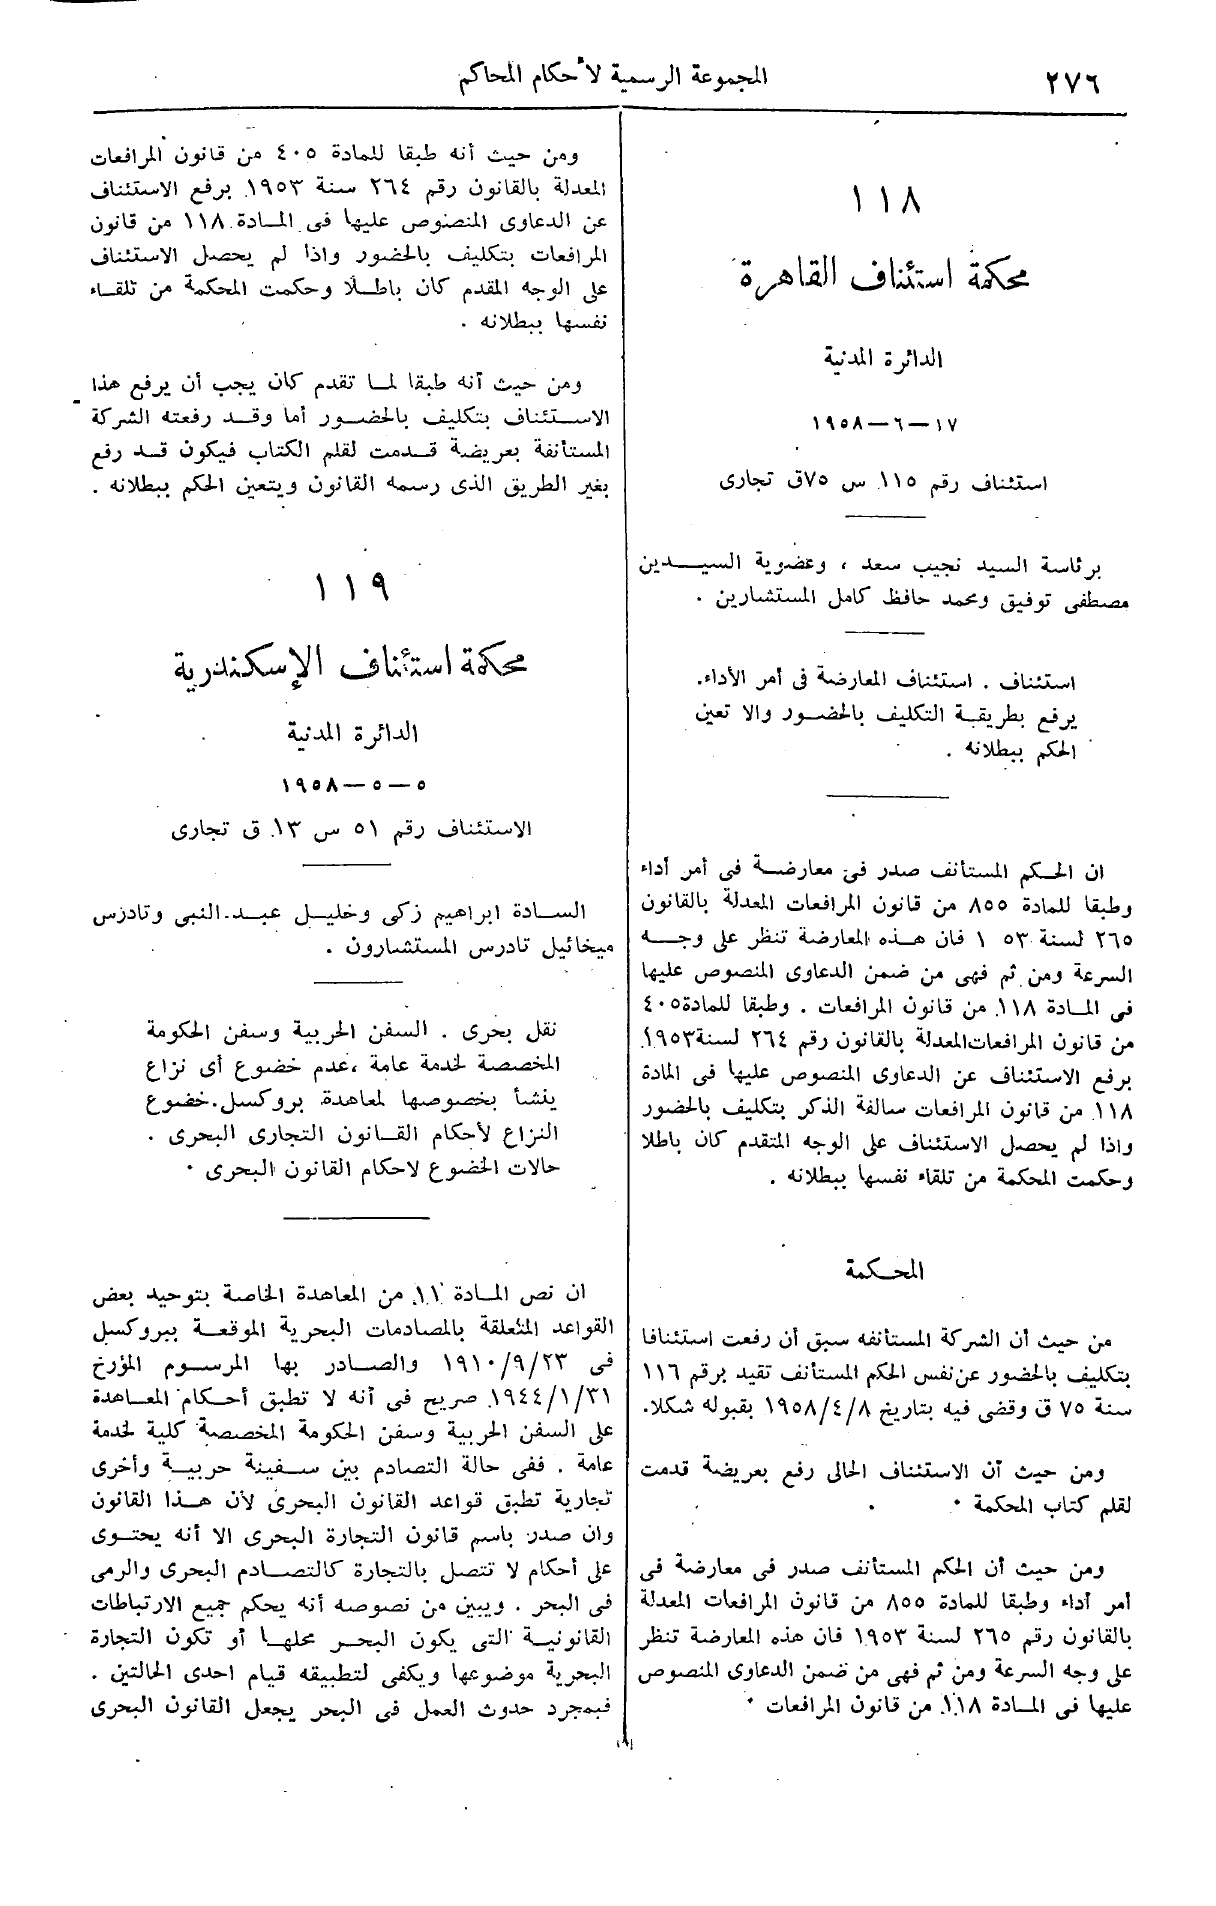 ٢٧٦
المجموعة الرسمية لأحكام المحاكم
١١٨
محكمة استئناف القاهرة
الدائرة المدنية
١٧—٦—١٩٥٨
استئناف رقم ١١٥ س ٧٥ق تجارى
برئاسة السيد نجيب سعد ، وعضوية السيدين
مصطفى توفيق ومحمد حافظ كامل المستشارين .
استئناف . استئناف المعارضة فى أمر الأداء.
يرفع بطريقة التكليف بالحضور والا تعين
الحكم ببطلانه .
ان الحكم المستأنف صدر فى معارضة فى أمر أداء
وطبقا للمادة ٨٥٥ من قانون المرافعات المعدلة بالقانون
٢٦٥ لسنة ٥٣ ١ فان هذه المعارضة تنظر على وجه
السرعة ومن ثم فهى من ضمن الدعاوى المنصوص عليها
فى المادة ١١٨ من قانون المرافعات . وطبقا للمادة٤٠٥
من قانون المرافعات المعدلة بالقانون رقم ٢٦٤ لسنة١٩٥٣
يرفع الاستئناف عن الدعاوى المنصوص عليها فى المادة
١١٨ من قانون المرافعات سالفة الذكر بتكليف بالحضور
واذا لم يحصل الاستئناف على الوجه المتقدم كان باطلا
وحكمت المحكمة من تلقاء نفسها ببطلانه .
المحكمة
من حيث أن الشركة المستأنفه سبق أن رفعت استئنافا
بتكليف بالحضور عن نفس الحكم المستأنف تقيد برقم ١١٦
سنة ٧٥ ق وقضى فيه بتاريخ ١٩٥٨/٤/٨ بقبوله شكلا.
ومن حيث أن الاستئناف الحالى رفع بعريضة قدمت
لقلم كتاب المحكمة .
ومن حيث أن الحكم المستأنف صدر فى معارضة فى
أمر أداء وطبقا للمادة ٨٥٥ من قانون المرافعات المعدلة
بالقانون رقم ٢٦٥ لسنة ١٩٥٣ فان هذه المعارضة تنظر
على وجه السرعة ومن ثم فهى من ضمن الدعاوى المنصوص
عليها فى المادة ١١٨ من قانون المرافعات .
ومن حيث أنه طبقا للمادة ٤٠٥ من قانون المرافعات
المعدلة بالقانون رقم ٢٦٤ سنة ١٩٥٣ يرفع الاستئناف
عن الدعاوى المنصوص عليها فى المادة ١١٨ من قانون
المرافعات بتكليف بالحضور واذا لم يحصل الاستئناف
على الوجه المقدم كان باطلا وحكمت المحكمة من تلقاء
نفسها ببطلانه .
ومن حيث أنه طبقا لما تقدم كان يجب أن يرفع هذا
الاستئناف بتكليف بالحضور أما وقد رفعته الشركة
المستأنفة بعريضة قدمت لقلم الكتاب فيكون قد رفع
بغير الطريق الذى رسمه القانون ويتعين الحكم ببطلانه .
١١٩
محكمة استئناف الإسكندرية
الدائرة المدنية
٥—٥—١٩٥٨
الاستئناف رقم ٥١ س ١٣ ق تجارى
السادة ابراهيم زكى وخليل عبد النبى وتادرس
ميخائيل تادرس المستشارون .
نقل بحرى . السفن الحربية وسفن الحكومة
المخصصة لخدمة عامة ،عدم خضوع أى نزاع
ينشأ بخصوصها لمعاهدة بروكسل.خضوع
النزاع لأحكام القانون التجارى البحرى .
حالات الخضوع لاحكام القانون البحرى .
ان نص المادة ١١ من المعاهدة الخاصة بتوحيد بعض
القواعد المتعلقة بالمصادمات البحرية الموقعة ببروكسل
فى ١٩١٠/٩/٢٣ والصادر بها المرسوم المؤرخ
١٩٤٤/١/٣١ صريح فى أنه لا تطبق أحكام المعاهدة
على السفن الحربية وسفن الحكومة المخصصة كلية لخدمة
عامة . ففى حالة التصادم بين سفينة حربية وأخرى
تجارية تطبق قواعد القانون البحرى لأن هذا القانون
وان صدر باسم قانون التجارة البحرى الا أنه يحتوى
على أحكام لا تتصل بالتجارة كالتصادم البحرى والرمى
فى البحر . ويبين من نصوصه أنه يحكم جميع الارتباطات
القانونية التى يكون البحر محلها أو تكون التجارة
البحرية موضوعها ويكفى لتطبيقه قيام احدى الحالتين .
فبمجرد حدوث العمل فى البحر يجعل القانون البحرى